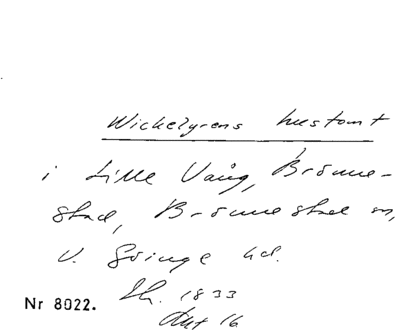 Wickelgrens hustomt
i Lilla Vång, Brönne-
stad, Brönnestad sn,
V. Göinge hd.
Nr 8022. Sk. 1833
Akt 16